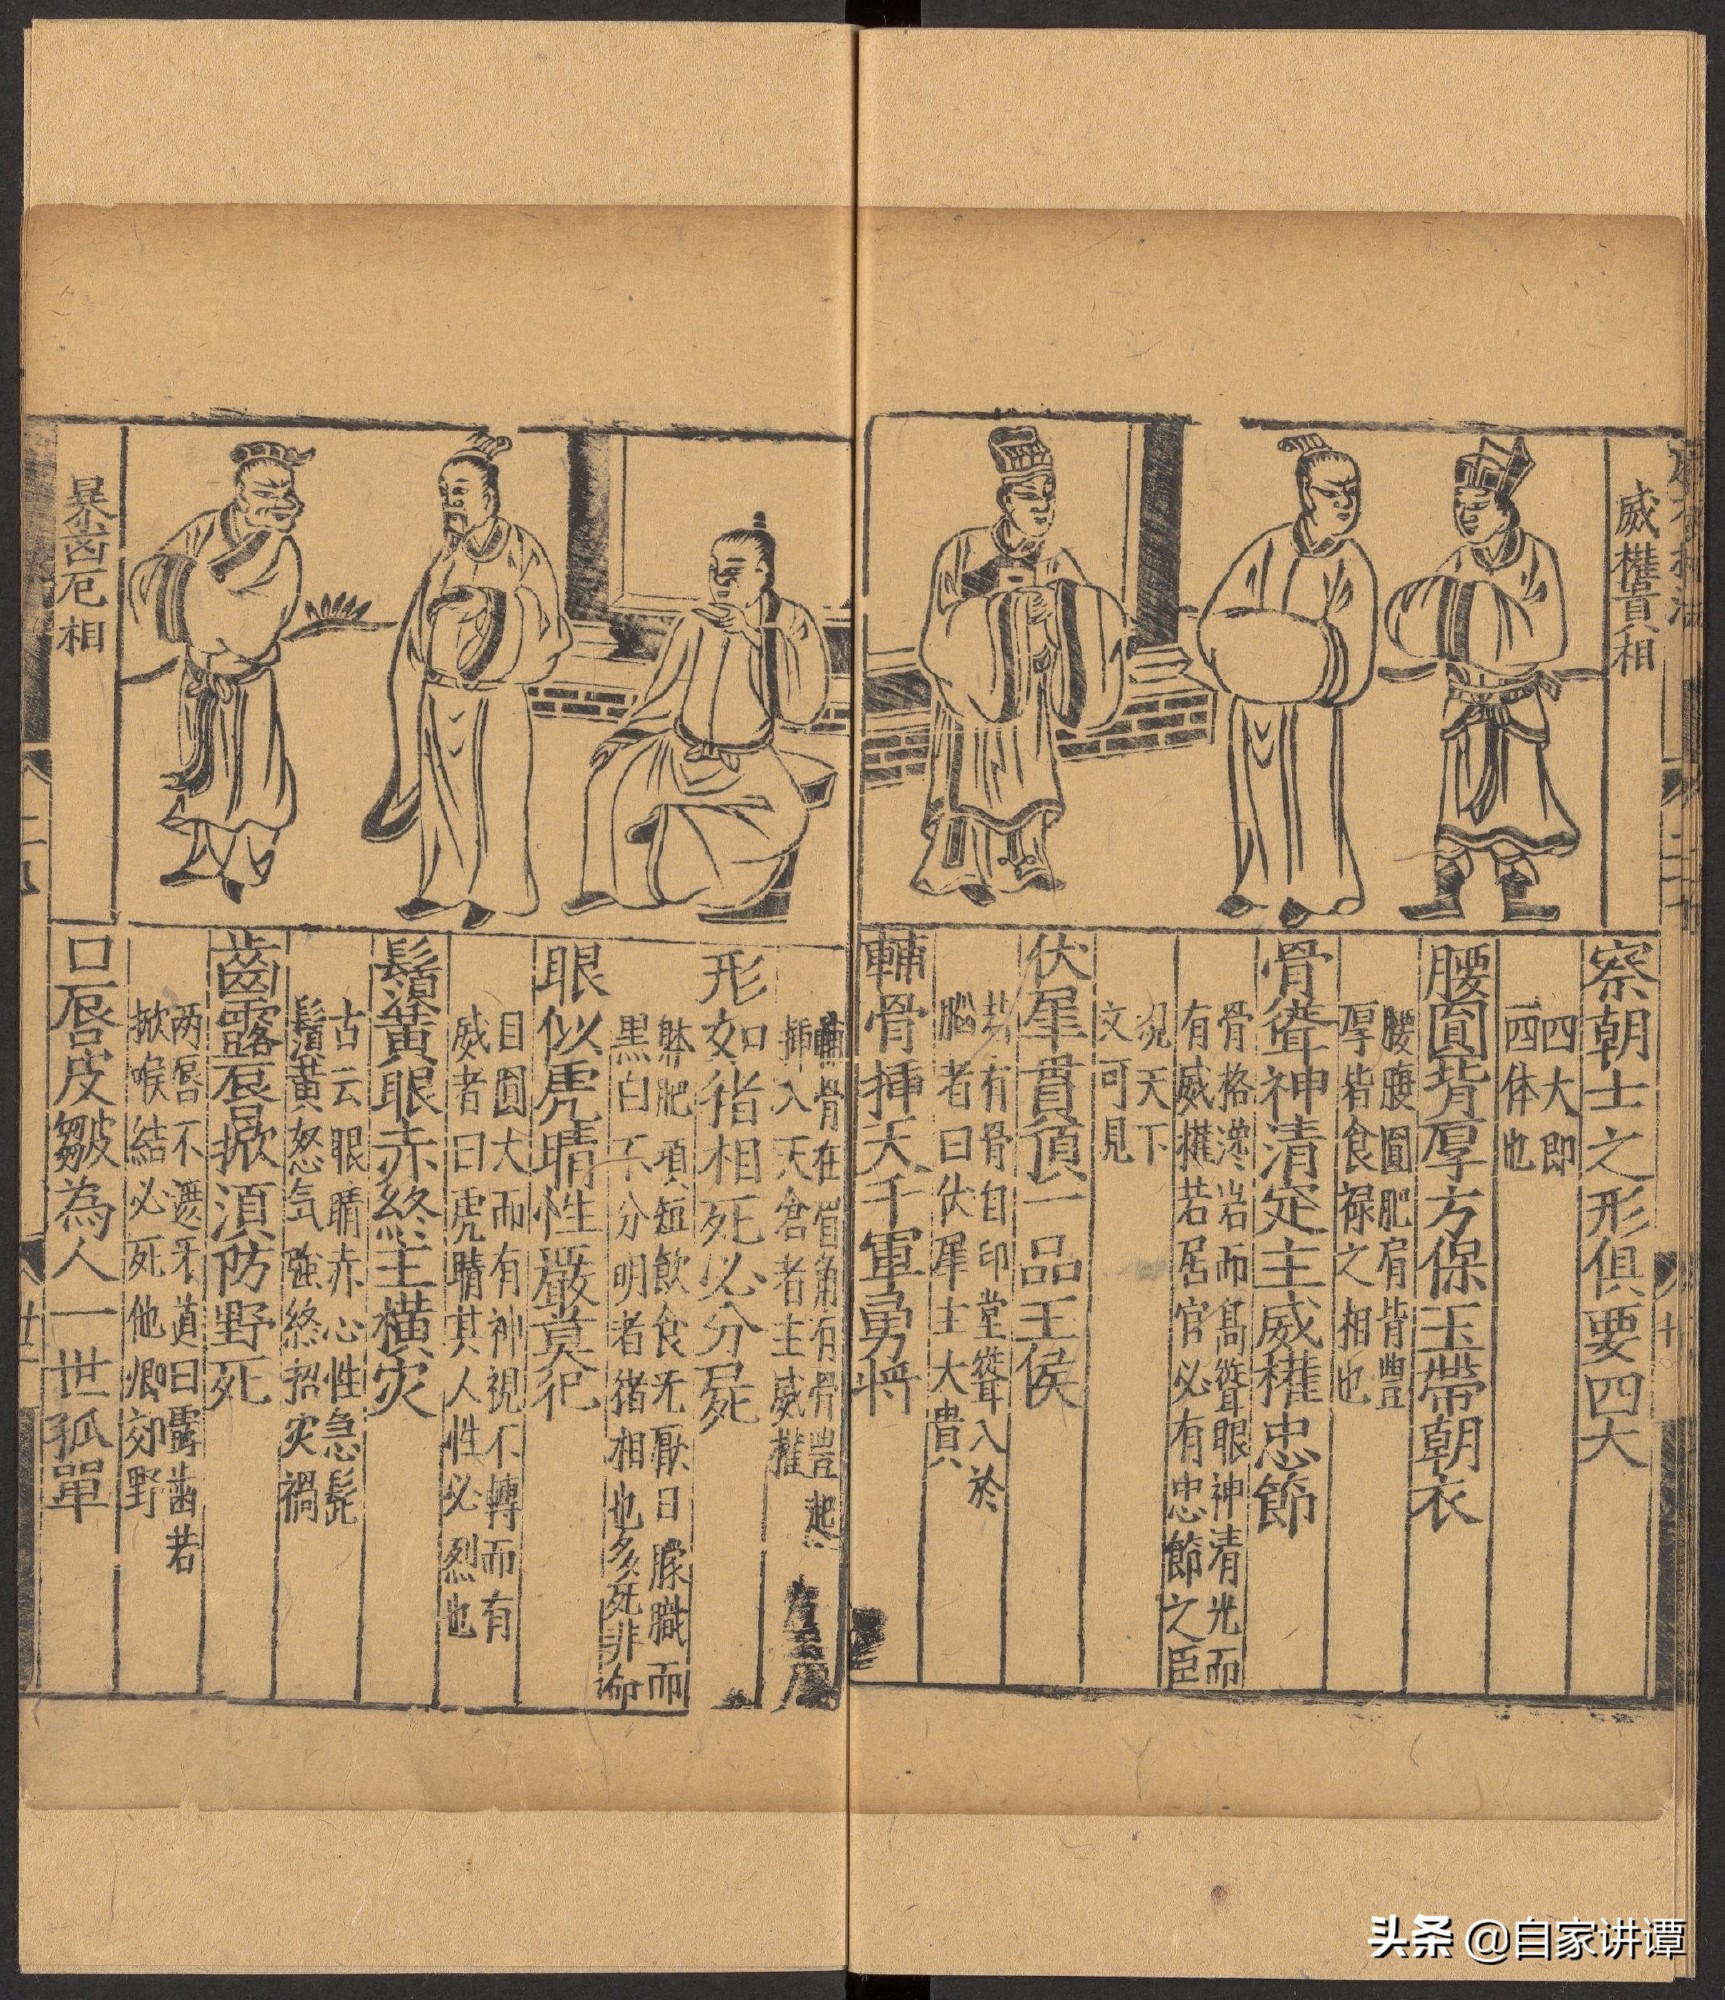 威權貴相
察朝士之形俱要四大
四大即
四体也
腰圓背厚方保玉帶朝衣
腰腹圓肥肩背豐
厚皆食禄之相也
骨聳神清定主威權忠節
骨格灣岩而髙聳眼神清光而
有威權若居官必有忠節之臣
况天下
文可見
伏犀貫頂一品王侯
若有骨自印堂聳入於
腦者曰伏犀主大貴
輔骨挿天千軍勇將
輔骨在眉角有骨豐起
挿入天倉者主威權
形如猪相死必分屍
躰肥項短飲食无厭日朦朧而
黑白不分明者猪相也多死非命
眼似虎睛性嚴莫犯
目圓大而有神視不轉而有
威者曰虎睛其人性必烈也
鬚黃眼赤終主橫灾
古云眼睛赤心性急髭
鬚黄怒気強終招灾禍
齒露唇掀須防野死
两唇不遮牙道曰露歯若
掀喉結必死他鄉郊野
口唇皮皺為人一世孤單
暴凶厄相
头条 @自家讲谭